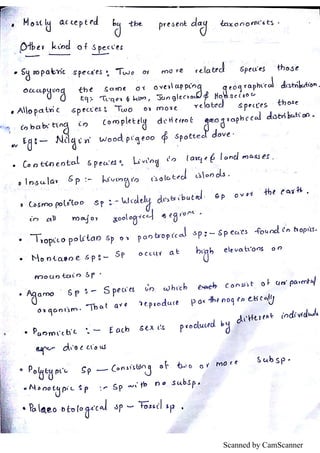 • Mostly accepted by the present day taxonomists.
Other kind of species
• Sympatric species: Two or more related species those
occupying the same or overlapping geographical distribution.
Eg: Tiger & lion, Junglecrow & Housecrow
• Allopatric species: Two or more related species those
inhabiting in completely different geographical distribution.
Eg:- Nilgiri wood pigeon & spotted dove.
• Continental species: Living in large & land masses.
• Insular Sp :- Living in isolated islands.
• Cosmopolitan sp :- Widely distributed sp over the earth.
in all major zoological regions.
• Tropicopolitan sp or pantropical sp:- Species found in tropics.
• Montane sp:- Sp occur at high elevations on
mountain sp.
• Agamo sp :- Species in which each consist of uniparental
organism. That are reproduce parthenogenetically
• Panmictic :- Each sex is produced by different individuals
dioecious
• Polytypic Sp – Consisting of two or more subsp.
• Monotypic sp :- Sp with no subsp.
• Palaeontological sp – Fossil sp.
Scanned by CamScanner